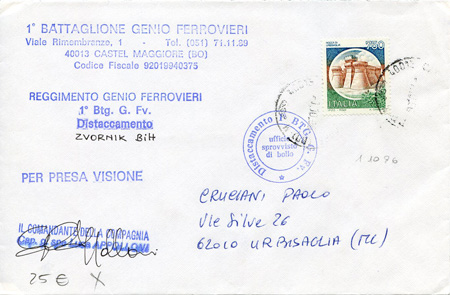 1° BATTAGLIONE GENIO FERROVIERI
Viale Rimembranze, 1 - Tel. (051) 71.11.89
40013 CASTEL MAGGIORE (BO)
Codice Fiscale 92019940375
REGGIMENTO GENIO FERROVIERI
1° Btg. G. Fv.
Distaccamento
ZVORNIK BiH
PER PRESA VISIONE
IL COMANDANTE DELLA COMPAGNIA
Cap. g.
25€ X
ITALIA
Distaccamento 1° BTG. G. Fv.
ufficio
sprovvisto
di bollo
11096
CRUCIANI PAOLO
Vle Silve 26
62010 URBISAGLIA (MC)